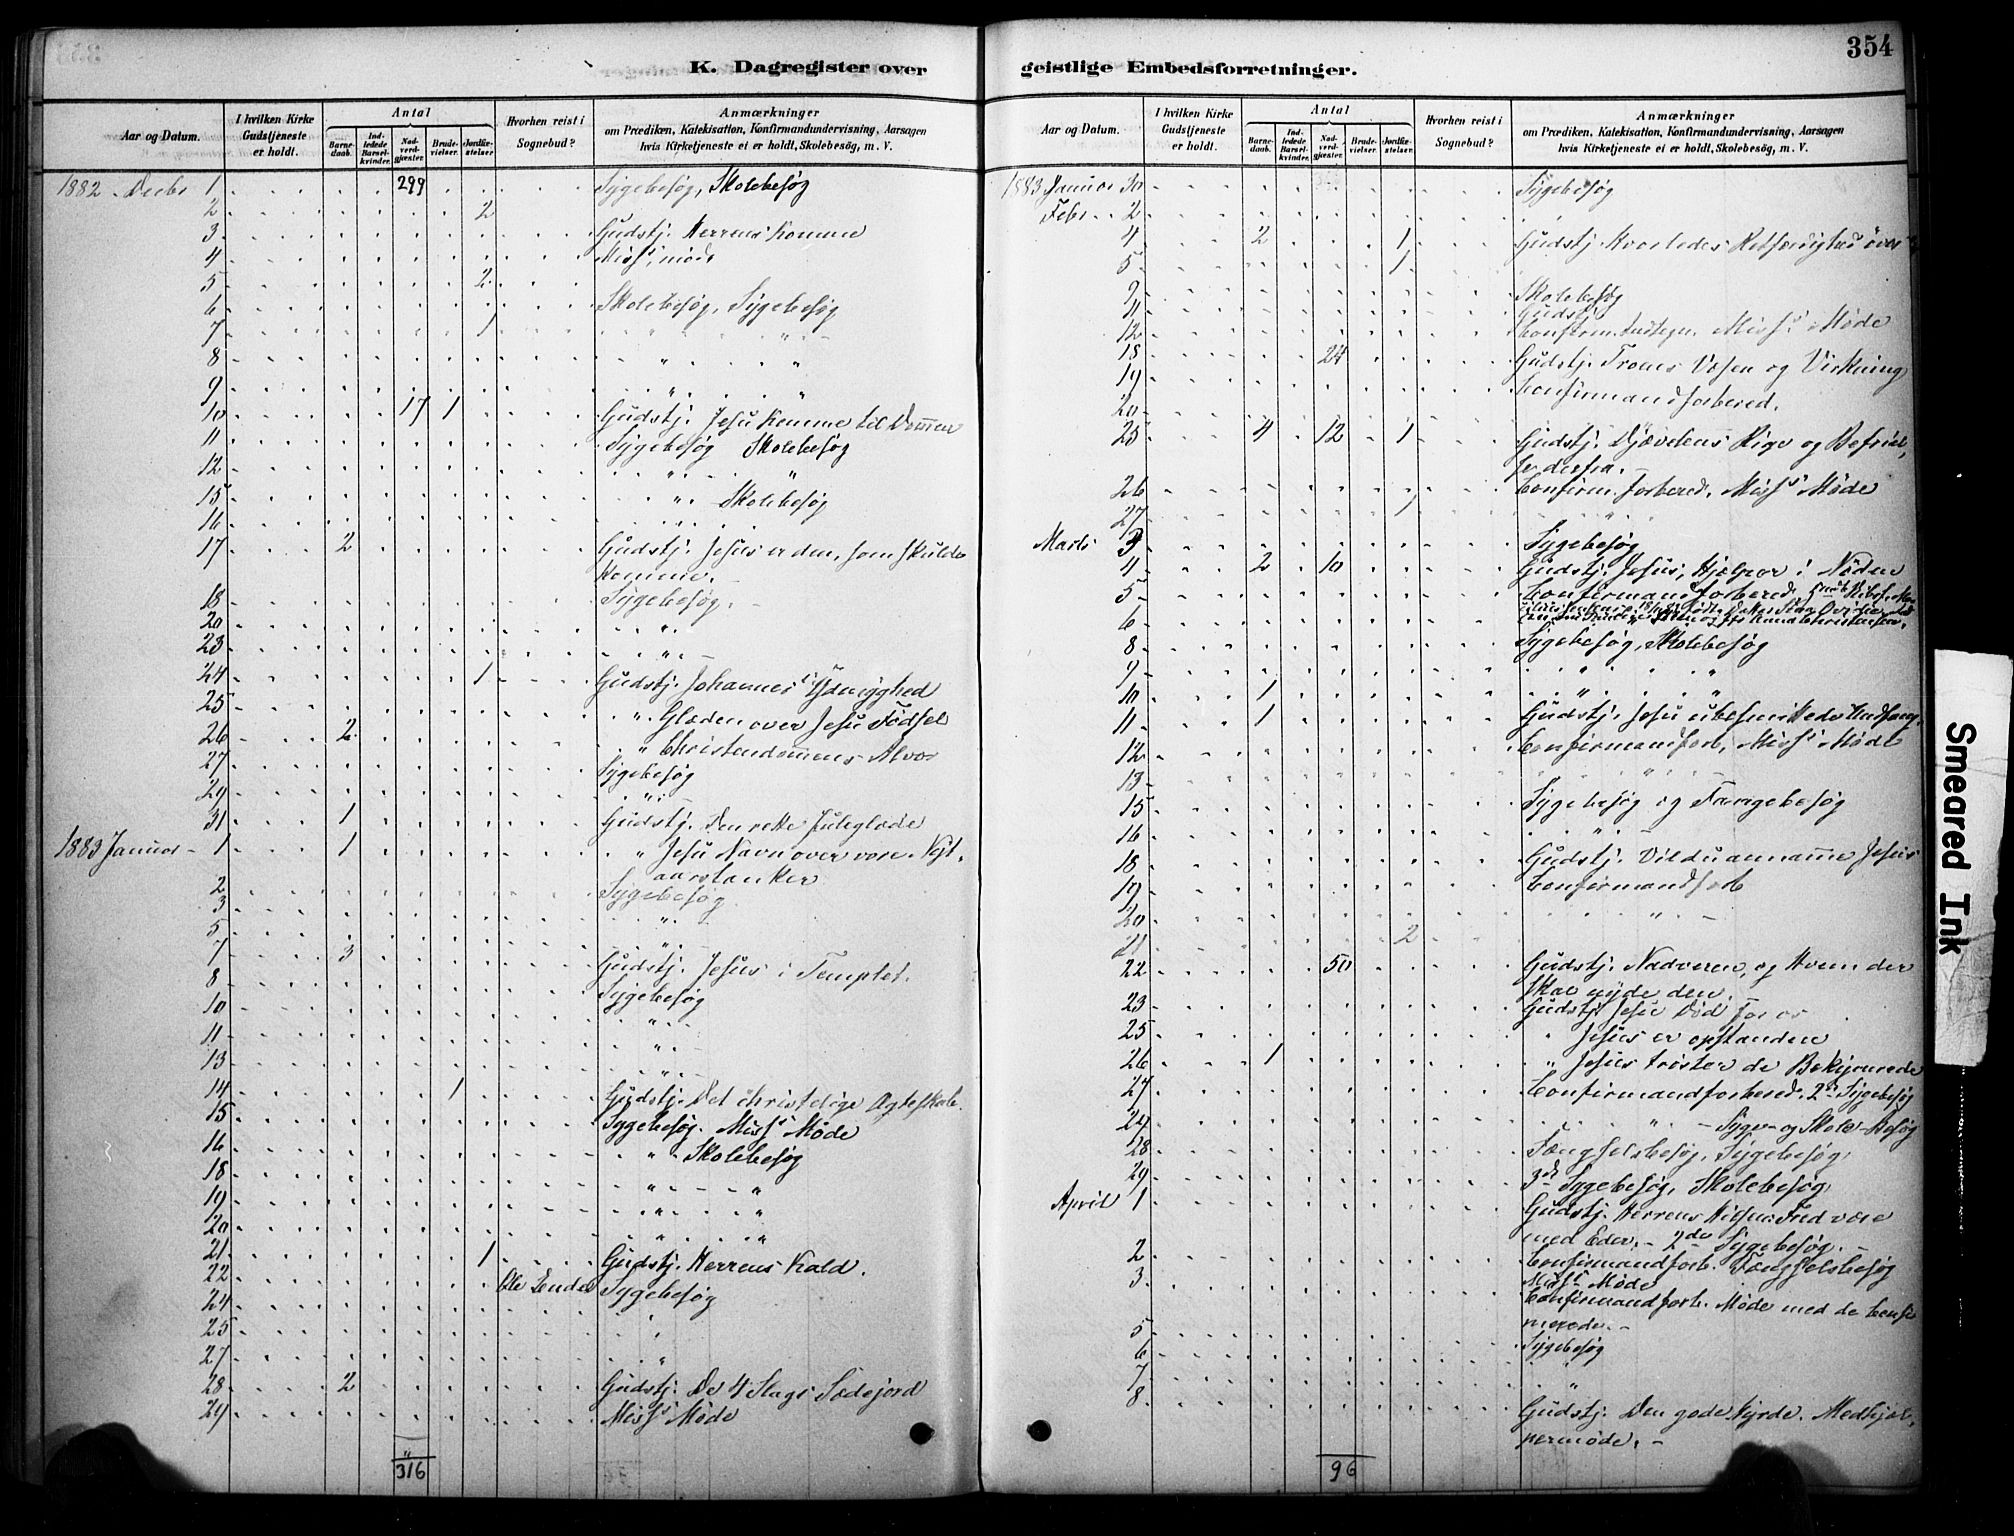 K. Dagregister over
geistlige Embedsforretninger.
354
Aar og Datum.
I hvilken Kirke Gudstjeneste er holdt.
Antal
Barnedaab.
Indledede Barselkvinder.
Nadverdgjæster.
Brudevielser.
Jordfæstelser.
Hvorhen reist i Sognebud?
Anmærkninger
om Prædiken, Katekisation, Konfirmandundervisning, Aarsagen
hvis Kirketjeneste ei er holdt, Skolebesög, m. V.
1882 Decbr 1 299 Sygebesøg, Skolebesøg
2 2
3 Gudstj. Herrens Komme
4 Miss. møde
5 2
6 Skolebesøg, Sygebesøg
7 1 " "
8 " "
9 " "
10 17 1 Gudstj. Jesu Komme til Dommen
11 Sygebesøg Skolebesøg
12 " "
15 " Skolebesøg
16 "
17 2 Gudstj. Jesus er den, som skulde
Komme.
18 Sygebesøg.
20 "
23 "
24 1 Gudstj. Johannes's Ydmyghed
25 " Glæden over Jesu Fødsel
26 2 " Christendommens Alvor
27 Sygebesøg
29 "
31 1 Gudstj. Den rette Juleglæde
1883 Januar 1 1 " Jesu Navn over vore Nyt-
aarstanker
2 Sygebesøg
3 "
5 "
7 3 Gudstj. Jesus i Templet.
8 Sygebesøg
10 "
11 "
13 "
14 1 Gudstj. Det christelige Ægteskab.
15 Sygebesøg. Miss. Møde
16 " Skolebesøg
18 " "
19 " "
20 " "
21 1 Gudstj. Herrens Kald.
22 Ole Sygebesøg
24
25 "
27 "
28 2 Gudstj. De 4 Slags Sædejord
29 Miss. Møde
316
Aar og Datum.
I hvilken Kirke Gudstjeneste er holdt.
Antal
Barnedaab.
Indledede Barselkvinder.
Nadverdgjæster.
Brudevielser.
Jordfæstelser.
Hvorhen reist i Sognebud?
Anmærkninger
om Prædiken, Katekisation, Konfirmandundervisning, Aarsagen
hvis Kirketjeneste ei er holdt, Skolebesög, m. V.
1883 Januar 30 Sygebesøg
Febr 2 "
4 2 1 Gudstj. Hvorledes Retfærdighed
5 1
9 Skolebesøg
11 Gudstj.
12 Confirm. Miss. Møde
18 24 Gudstj. Troens Væsen og Virkning
19 Confirmandforbered.
20
25 4 12 1 Gudstj. Djævelens Rige og Befriel-
se derfra.
26 Confirm. forbered. Miss. Møde
27 1 "
Marts 3 Sygebesøg
4 2 10 Gudstj. Jesus, Hjælper i Nøden
5 Confirmandforbered.
6
8 Sygebesøg, Skolebesøg
9 " "
10 1 " "
11 1 Gudstj. Jesu ubesmittede Undfang.
12 Confirmandforb. Miss. Møde
13 "
15 Sygebesøg og Fangebesøg
16 "
18 Gudstj. Vil du annamme Jesus
19 Confirmandforb
20 "
21 2
22 50 Gudstj. Nadveren, og Hvem der
skal nyde den.
23 Gudstj. Jesu Død for os
25 " Jesus er opstanden
26 1 " Jesus trøster de Bekymrede
27 Confirmandforbered. 2de Sygebesøg
27 " Syge- og Skole-Besøg
28 Fængselsbesøg, Sygebesøg
29 3de Sygebesøg, Skolebesøg
April 1 Gudstj. Herrens Hilsen: Fred være
med Eder. - 2de Sygebesøg. -
2 Confirmandforb. Fængselsbesøg
Miss. Møde
3 Confirmandforb. Møde med de Confir-
merede. -
5 Sygebesøg
6 "
7 "
8 Gudstj. Den gode Hyrde. Medhjæl-
permøde. -
96
Smeared Ink